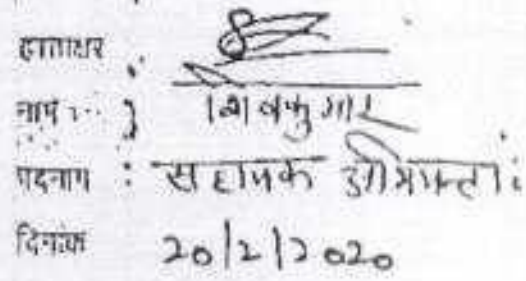 हस्ताक्षर
नाम : शिवकुमार
पदनाम : सहायक अभियन्ता
दिनांक 20/2/2020